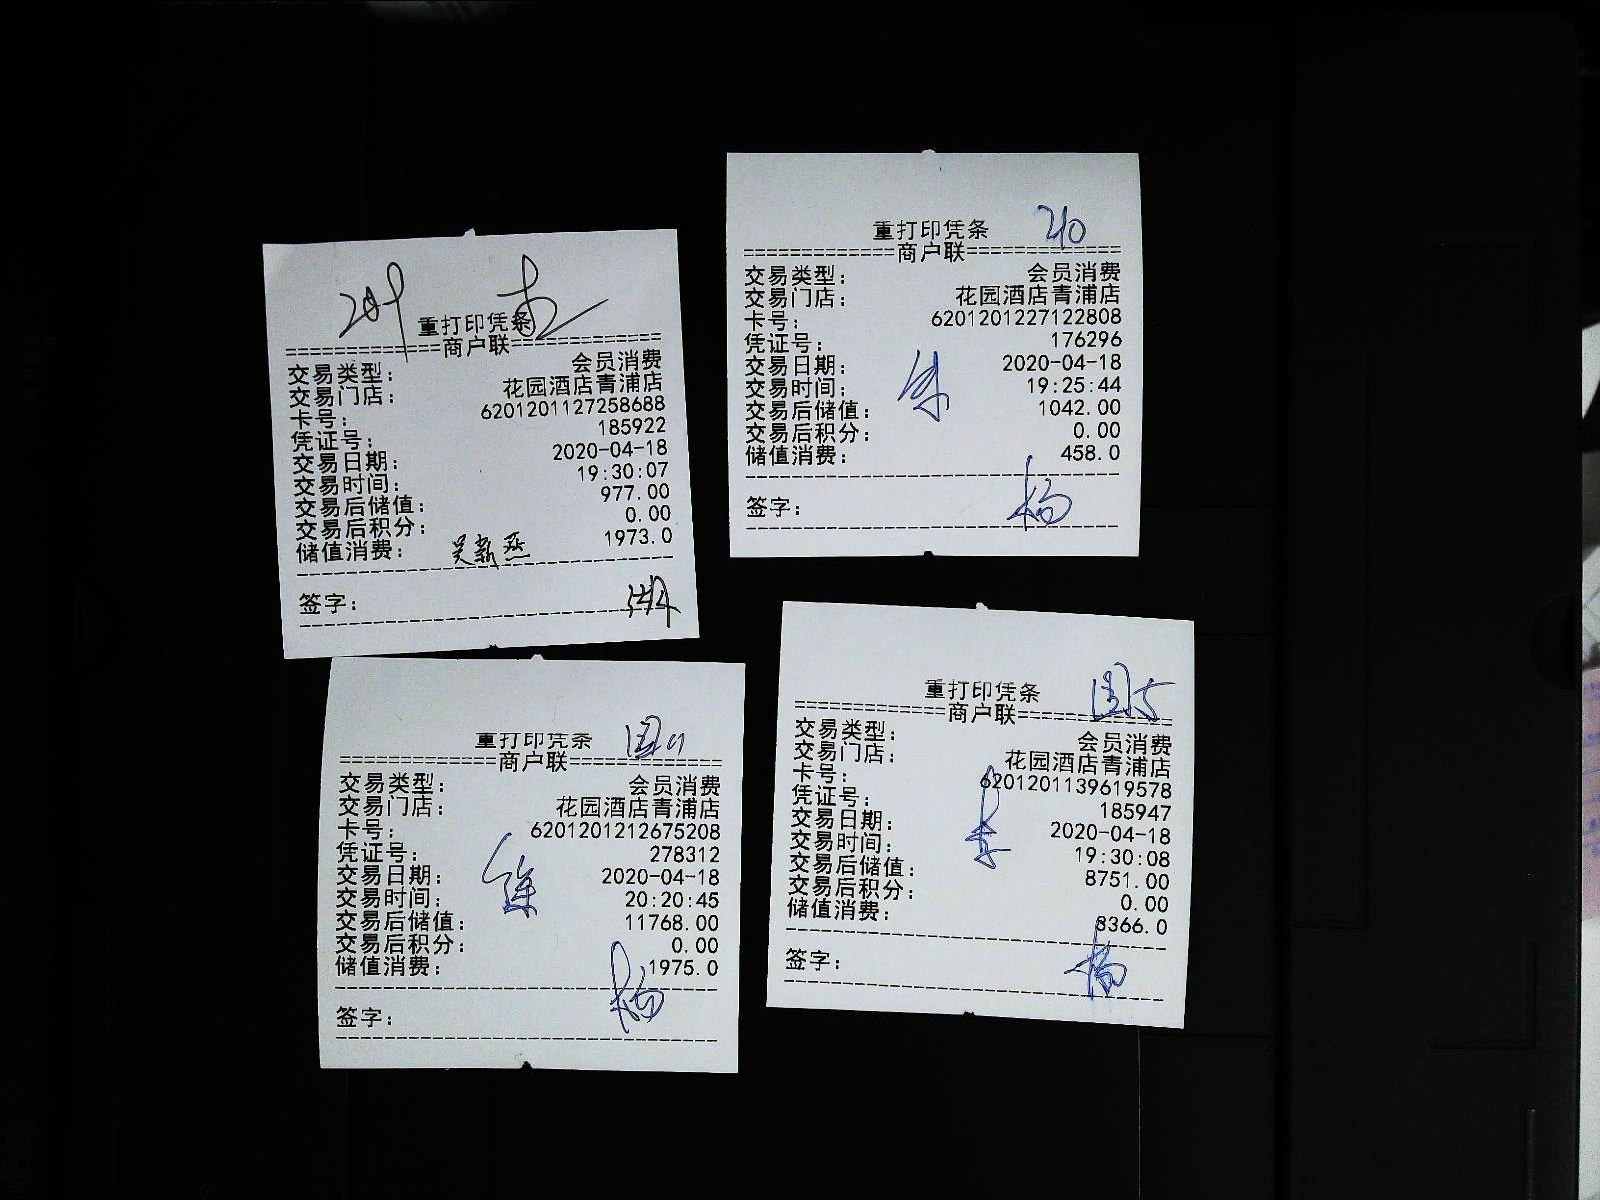 重打印凭条
商户联
交易类型: 会员消费
交易门店: 花园酒店青浦店
卡号: 6201201127258688
凭证号: 185922
交易日期: 2020-04-18
交易时间: 19:30:07
交易后储值: 977.00
交易后积分: 0.00
储值消费: 1973.0
签字:
重打印凭条 210
商户联
交易类型: 会员消费
交易门店: 花园酒店青浦店
卡号: 6201201227122808
凭证号: 176296
交易日期: 2020-04-18
交易时间: 19:25:44
交易后储值: 1042.00
交易后积分: 0.00
储值消费: 458.0
签字: 杨
重打印凭条
商户联
交易类型: 会员消费
交易门店: 花园酒店青浦店
卡号: 6201201212675208
凭证号: 278312
交易日期: 2020-04-18
交易时间: 20:20:45
交易后储值: 11768.00
交易后积分: 0.00
储值消费: 1975.0
签字: 杨
重打印凭条
商户联
交易类型: 会员消费
交易门店: 花园酒店青浦店
卡号: 6201201139619578
凭证号: 185947
交易日期: 2020-04-18
交易时间: 19:30:08
交易后储值: 8751.00
交易后积分: 0.00
储值消费: 3366.0
签字: 杨